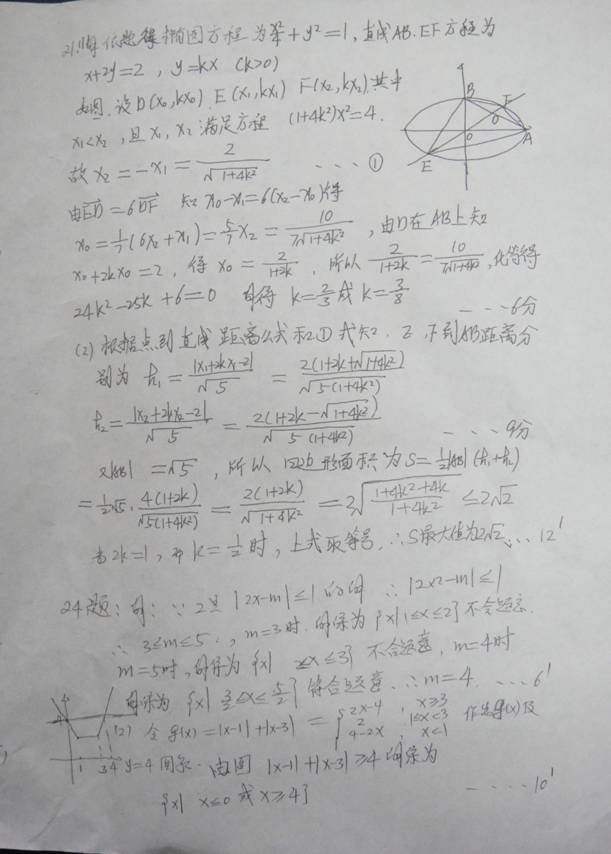 21.解 依题得椭圆方程为x²/4+y²=1,直线AB.EF方程为
x+2y=2 , y=kx (k>0)
如图.设D(x₀,kx₀) E(x₁,kx₁) F(x₂,kx₂) 其中
x₁<x₂,且x₁,x₂满足方程 (1+4k²)x²=4.
故 x₂=-x₁= 2/√(1+4k²) --- ①
由ED=6DF 知 x₀-x₁=6(x₂-x₀)得
x₀=1/7(6x₂+x₁)=5/7x₂= 10/7√(1+4k²) ,由D在AB上知
x₀+2kx₀=2,得 x₀= 2/(1+2k) .所以 2/(1+2k)=10/7√(1+4k²),化简得
24k²-25k+6=0 解得 k=2/3或k=3/8 ---6分
(2) 根据点到直线距离公式和①式知. E、F到AB距离分
别为 h₁=|x₁+2kx₁-2|/√5 = 2(1+2k+√(1+4k²))/√(5(1+4k²))
h₂=|x₂+2kx₂-2|/√5 = 2(1+2k-√(1+4k²))/√(5(1+4k²)) ---9分
又|AB|=√5 ,所以 四边形面积为S=1/2|AB|(h₁+h₂)
=1/2√5·4(1+2k)/√(5(1+4k²)) = 2(1+2k)/√(1+4k²) =2√((1+4k²+4k)/(1+4k²)) ≤2√2
当2k=1,即k=1/2时,上式取等号.∴S最大值为2√2.... 12'
24题:解:∵2是|2x-m|≤1的解 ∴|2×2-m|≤1
∴ 3≤m≤5., m=3时.解集为{x|1≤x≤2}不合题意.
m=5时,解集为{x| 2≤x≤3}不合题意, m=4时
解集为{x| 3/2≤x≤5/2}符合题意.∴m=4. ....6'
(2) 令g(x)=|x-1|+|x-3| = { 2x-4 , x≥3
2 , 1≤x<3 作出g(x)及
4-2x , x<1
y=4图象.由图 |x-1|+|x-3|≥4的解集为
{x| x≤0或x≥4} ----10'
B
F
O
D
A
E
4
1
3
4